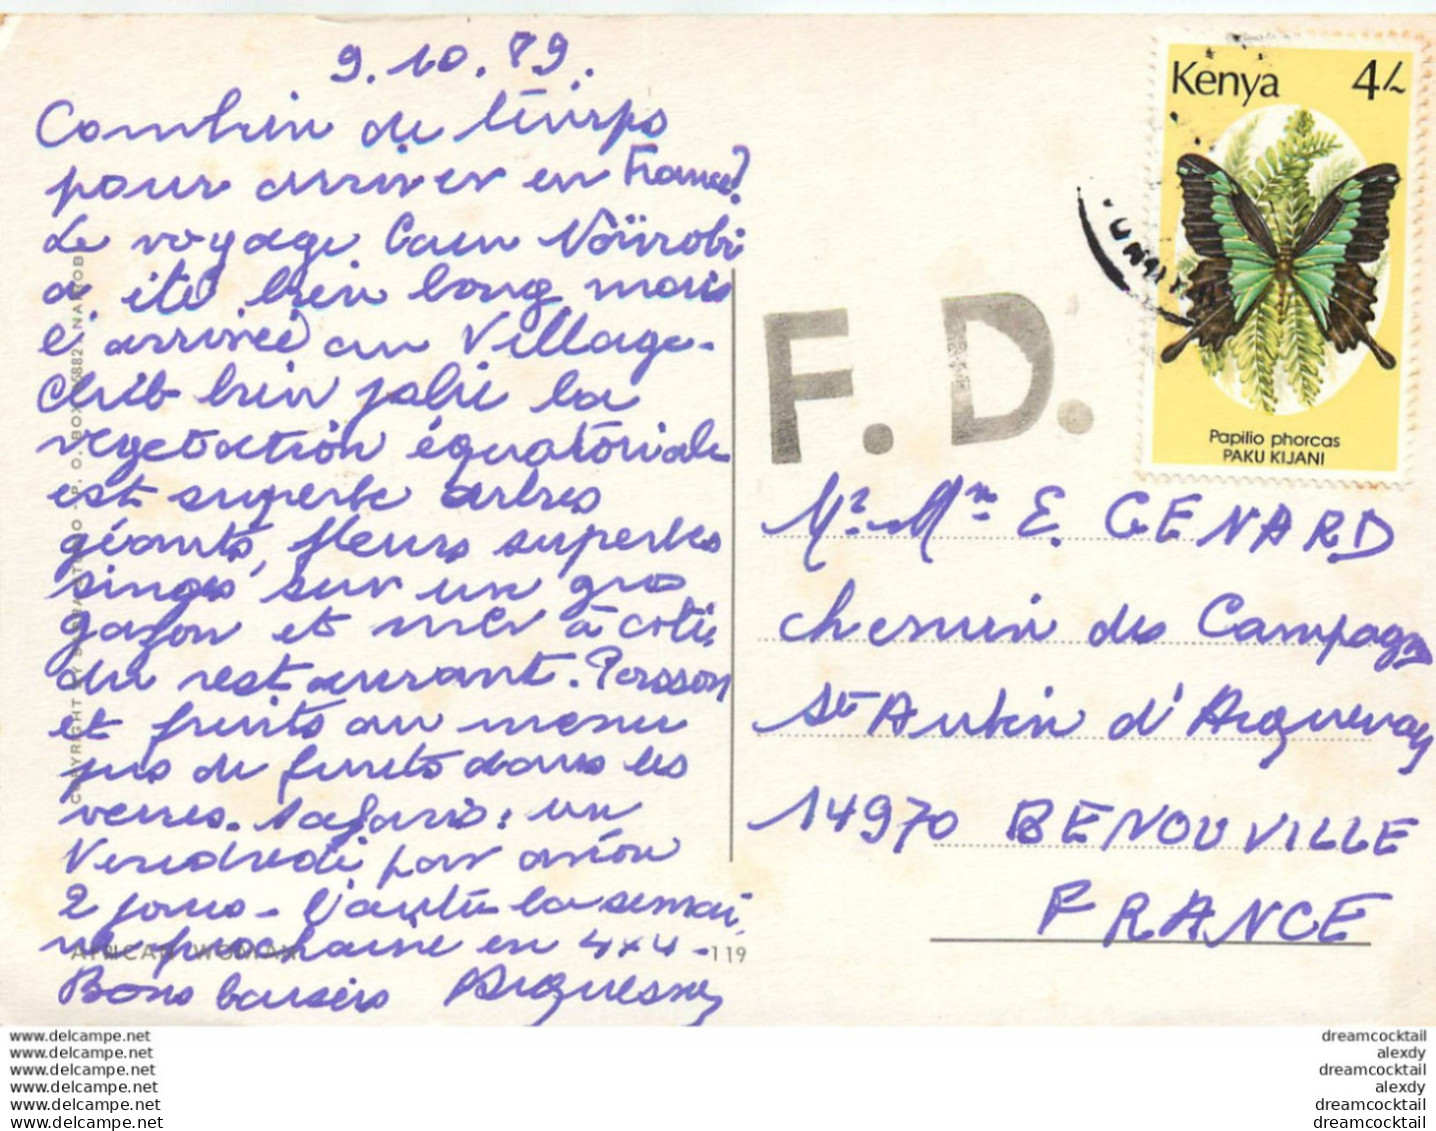 9.10.89.
Combien de temps
pour arriver en France?
Le voyage Caen Nairobi
a été bien long mais
l'arrivée au Village-
Club bien jolie la
vegetation équatoriale
est superbe arbres
géants, fleurs superbes
singes sur un gros
gazon et mer à coté
du restaurant. Poisson
et fruits au menu
jus de fruits dans les
verres. Safaris: un
Vendredi par avion
2 jours - l'autre la semai
ne prochaine en 4x4-
Bons baisers
COPYRIGHT BY - P. O. BOX 5882 NAIROBI
AFRICAN WOMAN 119
Kenya 4/-
Papilio phorcas
PAKU KIJANI
F. D.
Mr Mme E. GENARD
chemin des Campagnes
St Aubin d'Arquenay
14970 BENOUVILLE
FRANCE
www.delcampe.net
www.delcampe.net
www.delcampe.net
www.delcampe.net
www.delcampe.net
www.delcampe.net
dreamcocktail
alexdy
dreamcocktail
alexdy
dreamcocktail
dreamcocktail